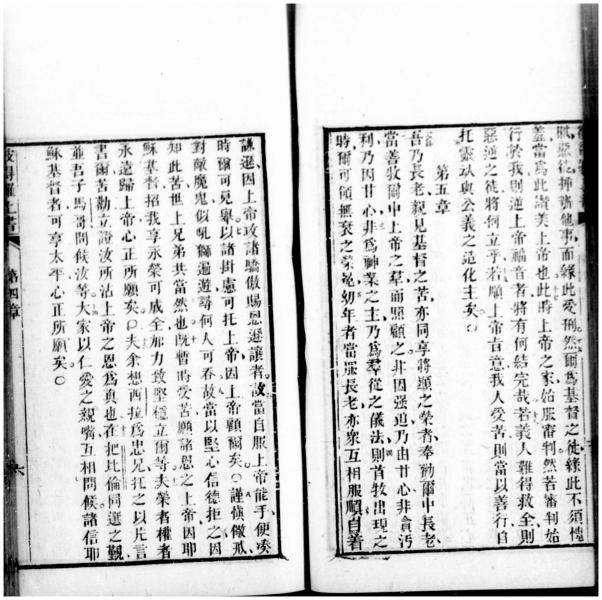 賊惡徒揷諸他事而緣此愛刑然爾爲基督之徒緣此不須愧
羞當爲此讚美上帝也此時上帝之家始服審判然若審判始
行於我則逆上帝福音者將有何結究哉若義人難得救全則
惡逆之徒將何立乎若願上帝旨意我人受苦則當以善行自
托靈魂與公義之造化主矣
第五章
吾乃長老親見基督之苦亦同享將顯之榮者奉勸爾中長老
當善牧爾中上帝之羣而照顧之非因强迫乃由甘心非貪污
利乃因甘心非爲神業之主乃爲羣從之儀法則首牧出現之
時爾可領無衰之榮冕幼年者當服長老亦衆互相服順自着
謙遜因上帝攻諸驕傲賜恩遜讓者故當自服上帝能手便凑
時爾可見舉以諸掛慮可托上帝因上帝顧爾矣○謹愼儆戒
對敵魔鬼似吼獅遍遊尋何人可吞故當以堅心信德拒之因
知此苦世上兄弟共當然也旣暫時受苦願諸恩之上帝因耶
穌基督招我享永榮可成全那力致堅穩立爾等夫榮者權者
永遠歸上帝心正所願矣○夫余想西拉爲忠兄托之以片言
書爾苦勸立證汝所沾上帝之恩爲眞也在把比倫同選之觀
並吾子馬哥問候汝等大家以仁愛之親嘴互相問候諸信耶
穌基督者可享太平心正所願矣○
第四章
六